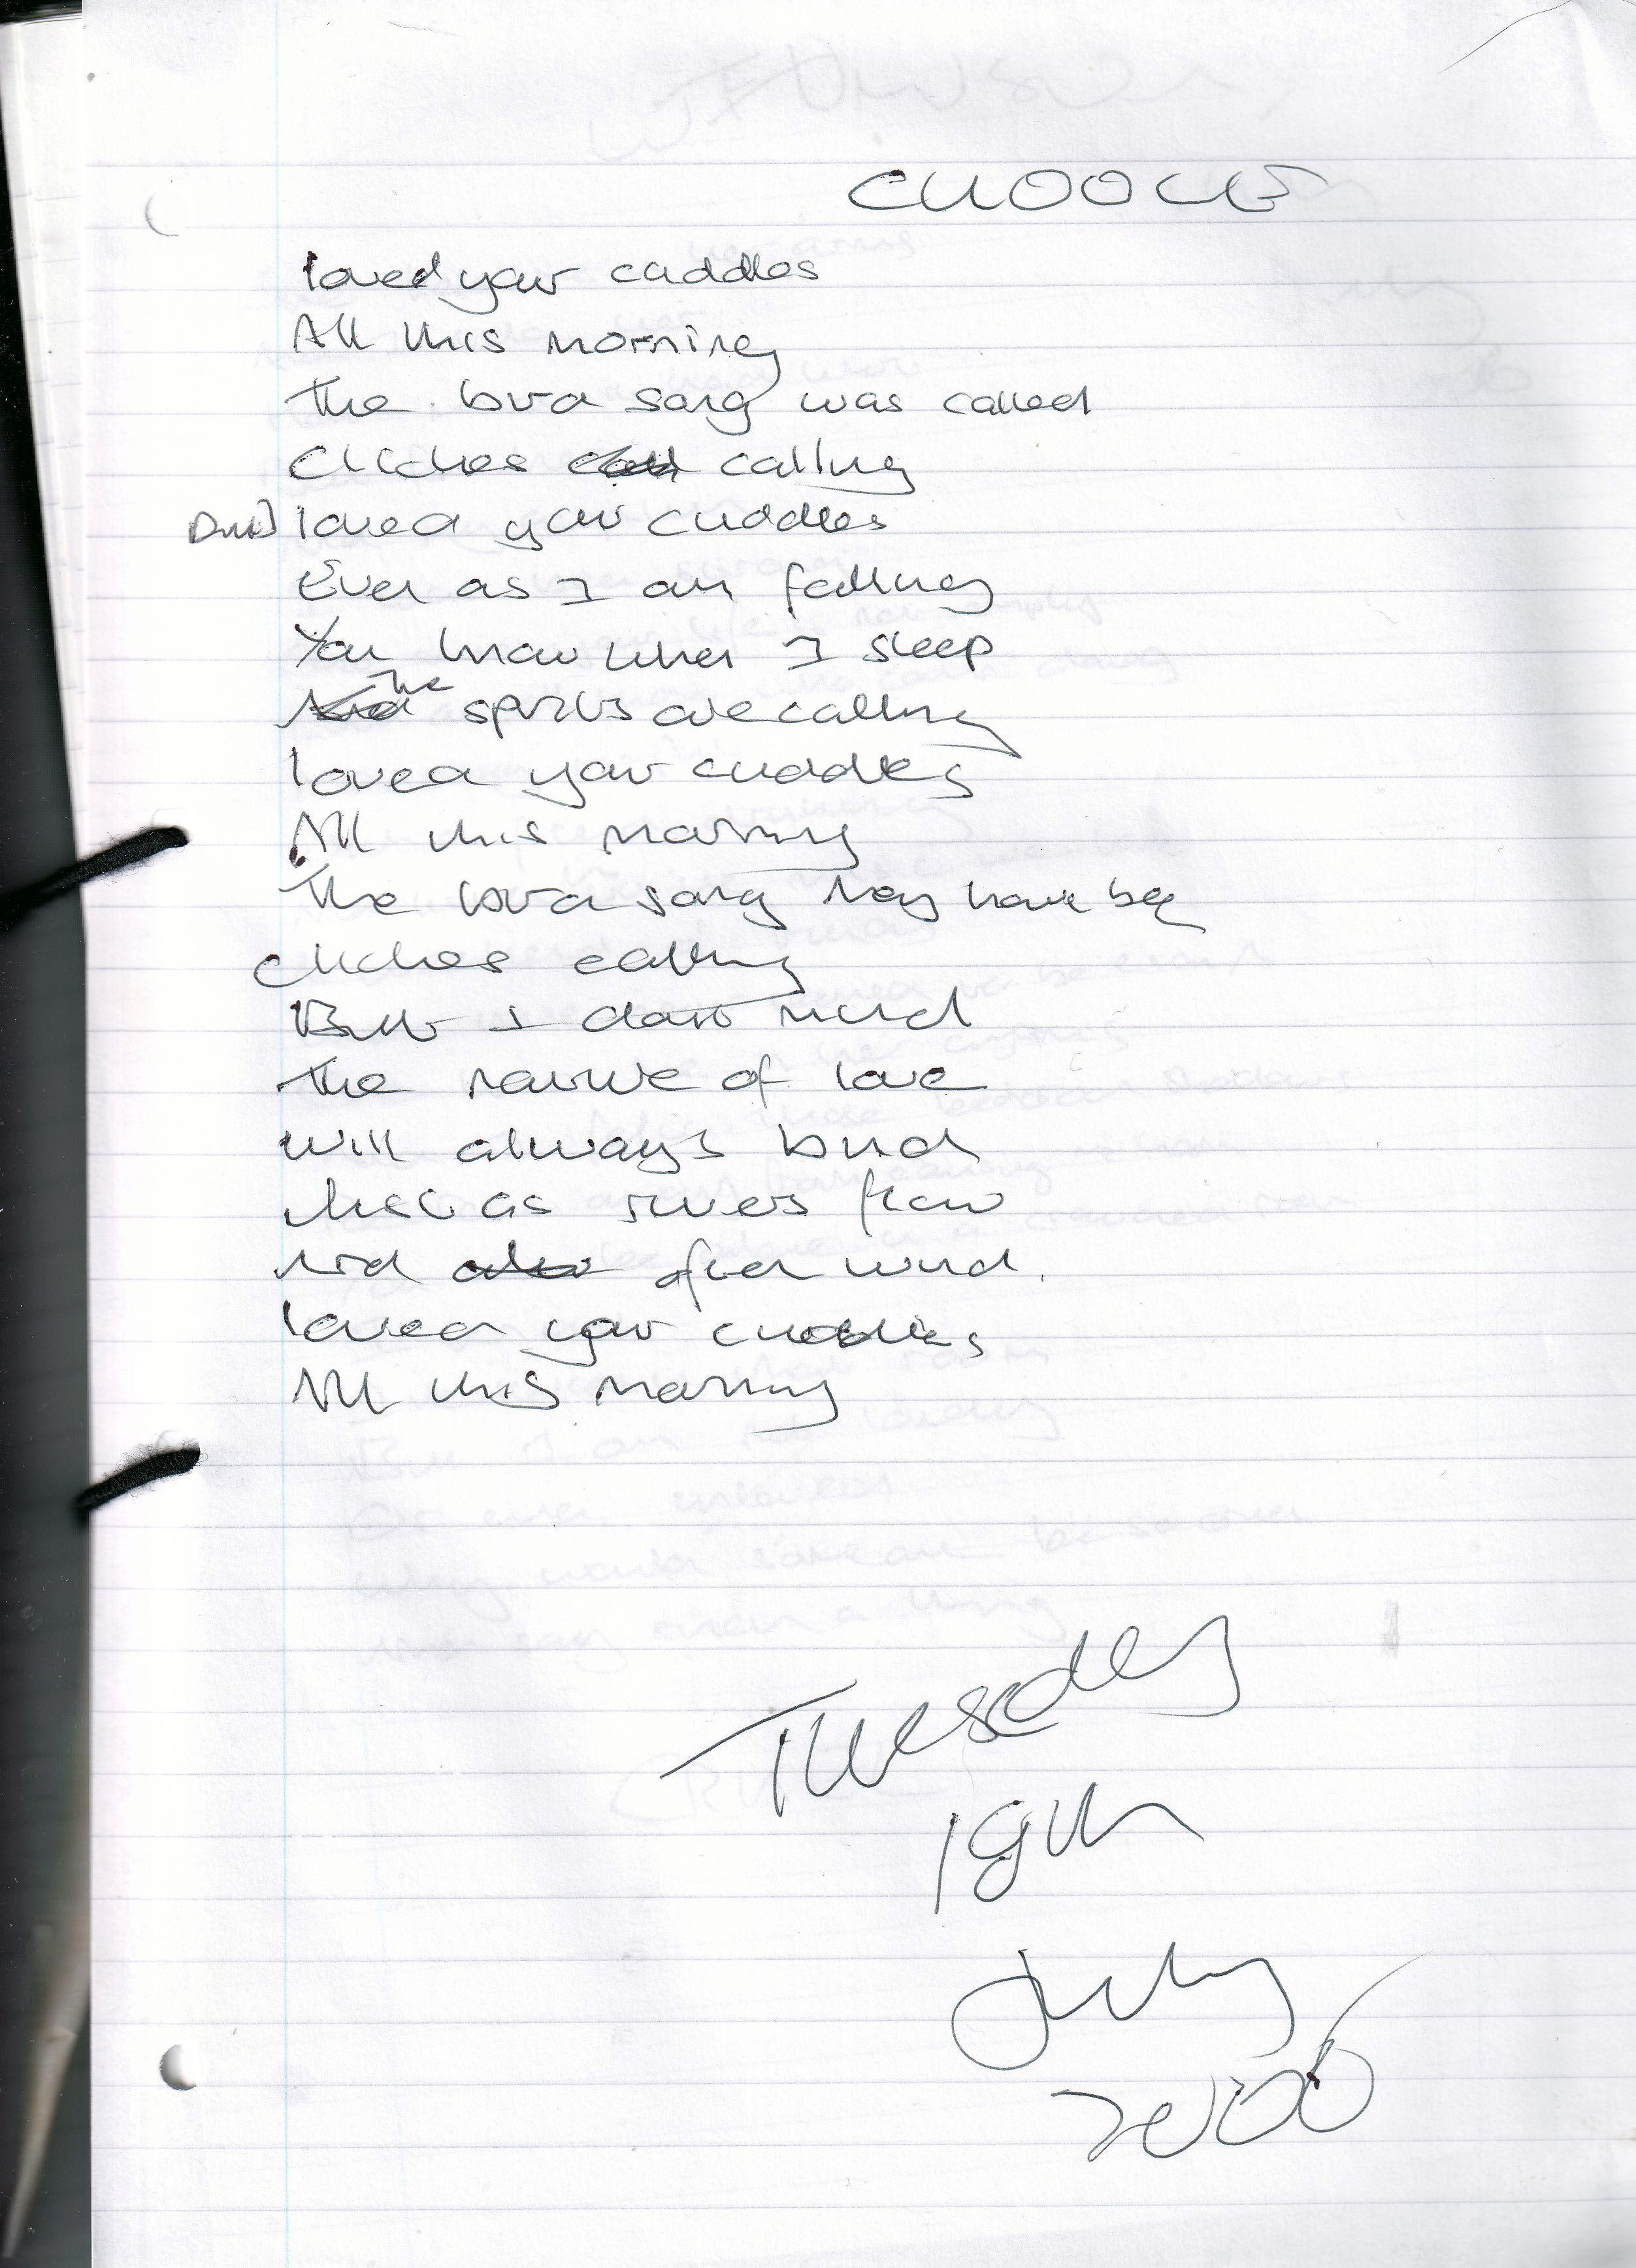 CUDDLES
loved your cuddles
All this morning
The bird song was called
Cliches calling
loved your cuddles
Even as I am falling
You know when I sleep
The spirits are calling
loved your cuddles
All this morning
The bird song may have been
cliches calling
But I dont mind
The nature of love
will always bind
Just as rivers flow
And often wind.
loved your cuddles
All this morning
Tuesday
18th
July
2006